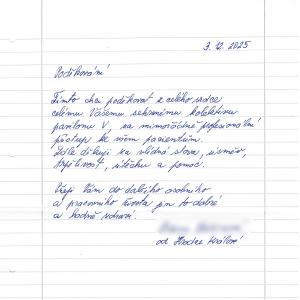 3. 12. 2025
Poděkování
Tímto chci poděkovat z celého srdce
celému Vašemu sehranému kolektivu
pavilonu V, za mimořádně profesionální
přístup ke všem pacientům.
Ještě děkuji za vlídná slova, úsměv,
trpělivost, útěchu a pomoc.
Přeji Vám do dalšího osobního
a pracovního života jen to dobré
a hodně zdraví.
od Hradce Králové